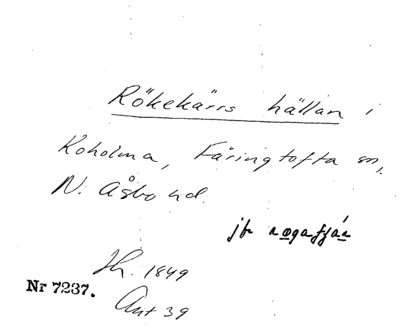 Rökekärrs hällan i
Koholma, Färingtofta sn,
N. Åsbo hd.
jfr røgatjár
Jh. 1849
Nr 7237.
Ant 39